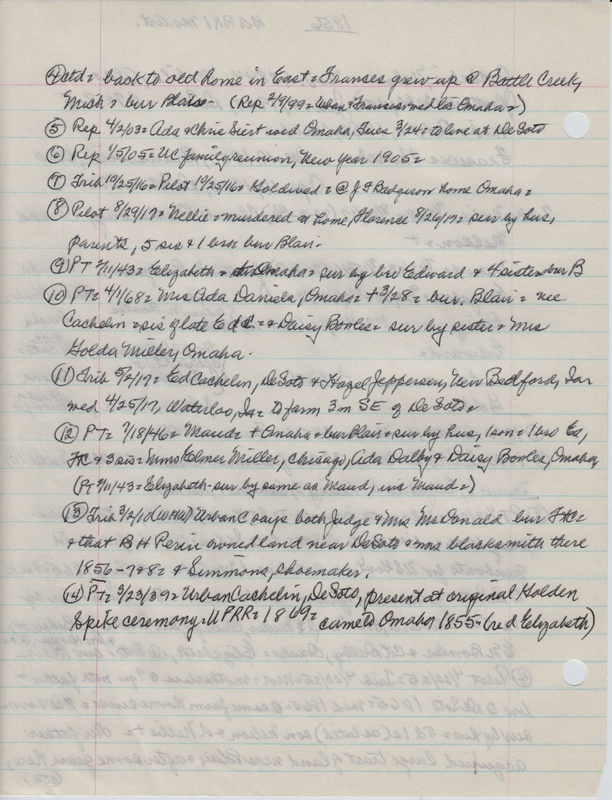 ④ ctd = back to old home in East = Franses grew up @ Battle Creek,
Mich = bur Blair - (Rep 2/9/99 = Urban & Frances med Omaha =)
⑤ Rep 4/2/03 = Ada & Chris Siert wed Omaha, Tues 3/24 = to live at DeSoto
⑥ Rep 1/5/05 = UC family reunion, New Year 1905 =
⑦ Trib 10/25/16 = Pilot 10/25/16 = Golda wed = @ J F home Omaha =
⑧ Pilot 8/29/17 = Nellie = murdered at home, Florence 8/26/17 = sur by hus,
parents, 5 sis & 1 bro = bur Blair.
⑨ PT 2/11/43 = Elizabeth = Omaha = sur by bro Edward & 4 sisters = bur B
⑩ PT = 4/1/68 = Mrs Ada Daniels, Omaha = + 3/28 = bur. Blair = nee
Cachelin = sis of late Ed C. = & Daisy Bowles = sur by sister = Mrs
Golda Miller, Omaha.
⑪ Trib 5/2/17 = Ed Cachelin, DeSoto & Hazel Jeppersen, New Bedford, Ia
wed 4/25/17, Waterloo, Ia = to farm 3 m SE of DeSoto =
⑫ PT = 7/18/46 = Maud = + Omaha = bur Blair = sur by hus, 1 son = 1 bro Ed,
FC & 3 sis = Mms Elmer Miller, Chicago, Ada Dalby & Daisy Bowles, Omaha
(PT 2/11/43 = Elizabeth - sur by same as Maud, Maud =)
⑬ Trib 3/2/10 (WHW) Urban C says both Judge & Mrs McDonald bur FHC =
& that B H owned land near DeSoto & blacksmith there
1856 - 7 & 8 = & Simmons, shoemaker.
⑭ PT = 3/23/39 = Urban Cachelin, DeSoto, present at original Golden
Spike ceremony = UPRR = 1869 = came to Omaha 1855 = (red Elizabeth)